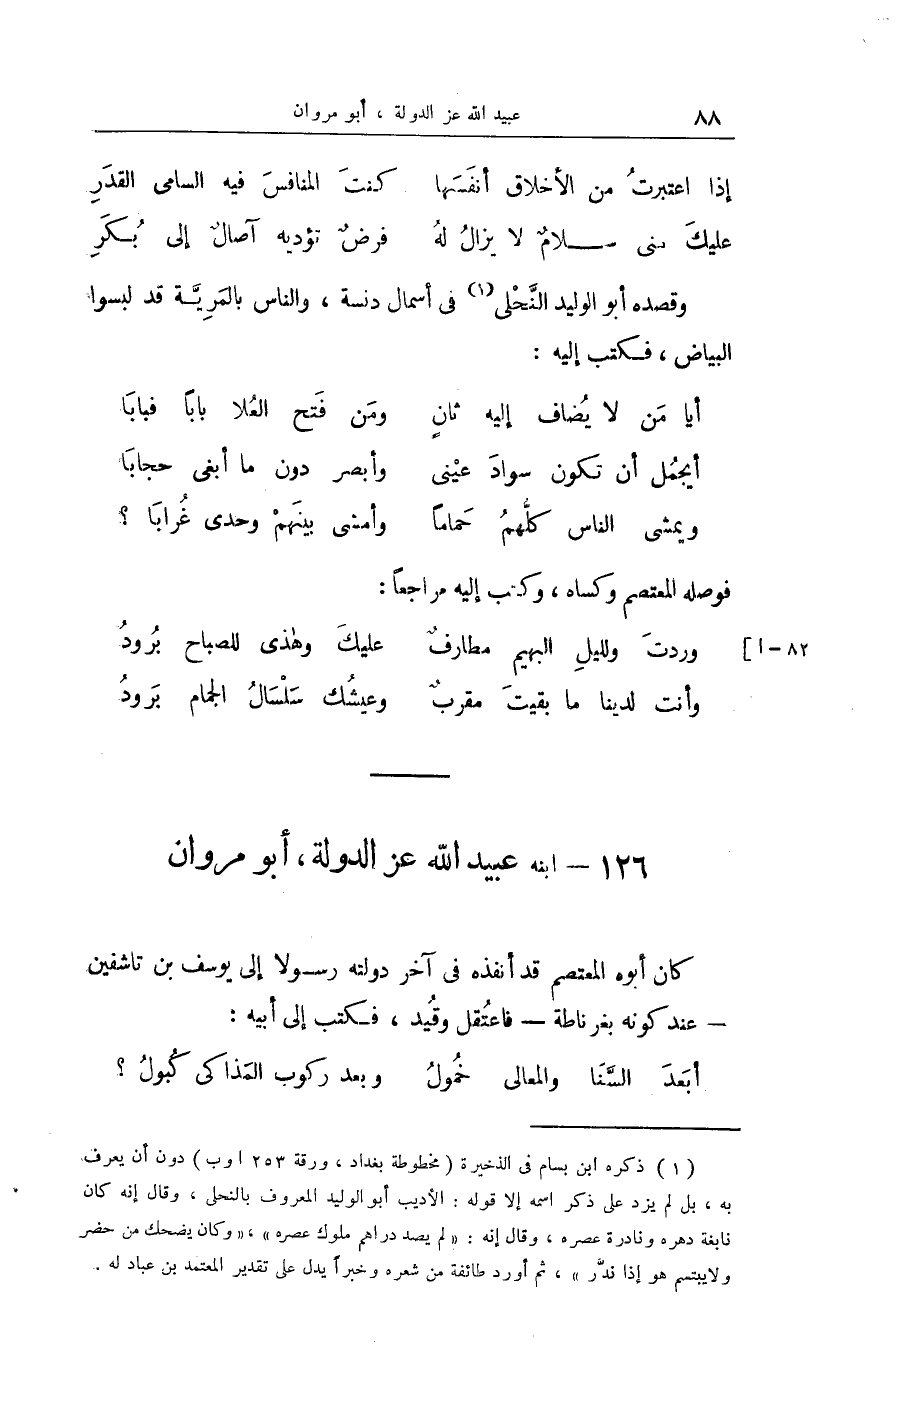 ٨٨ عبيد الله عز الدولة ، أبو مروان
إذا اعتبرتُ من الأخلاق أنفَسَها كنتَ المنافسَ فيه السامى القدَرِ
عليكَ منى ســلامٌ لا يزالُ لهُ فرضٌ تؤديه آصالٌ إلى بُـكَرِ
وقصده أبو الوليد النَّحْلى (١) فى أسمال دنسة ، والناس بالمَرِيَّـة قد لبسوا
البياض ، فـكتب إليه :
أيا مَن لا يُضاف إليه ثانٍ ومَن فَتح العُلا باباً فبابَا
أيجمُل أن تـكون سوادَ عيْنى وأبصر دون ما أبغى حجابَا
ويمشى الناس كلُّهمُ حَماماً وأمشى بينَهمْ وحدى غُرابَا ؟
فوصله المعتصم وكساه ، وكتب إليه مراجعاً :
٨٢ – ا ] وردتَ ولليلِ البهيم مطارفٌ عليكَ وهٰذى للصباح بُرودُ
وأنت لدينا ما بقيتَ مقربٌ وعيشُك سَلْسَالُ الجمام بَرودُ
١٢٦ — ابنه عبيد الله عز الدولة ، أبو مروان
كان أبوه المعتصم قد أنفذه فى آخر دولته رسـولا إلى يوسف بن تاشفين
— عند كونه بغرناطة — فاعتُقل وقُيد ، فـكتب إلى أبيه :
أبَعدَ السَّنَا والمعالى خُمولُ وبعد ركوب المَذاكى كُبولُ ؟
( ١ ) ذكره ابن بسام فى الذخيرة ( مخطوطة بغداد ، ورقة ٢٥٣ ا وب ) دون أن يعرف
به ، بل لم يزد على ذكر اسمه إلا قوله : الأديب أبو الوليد المعروف بالنحلى ، وقال إنه كان
نابغة دهره ونادرة عصره ، وقال إنه : « لم يصد دراهم ملوك عصره » ، « وكان يضحك من حضر
ولا يبتسم هو إذا ندَّر » ، ثم أورد طائفة من شعره وخبراً يدل على تقدير المعتمد بن عباد له .